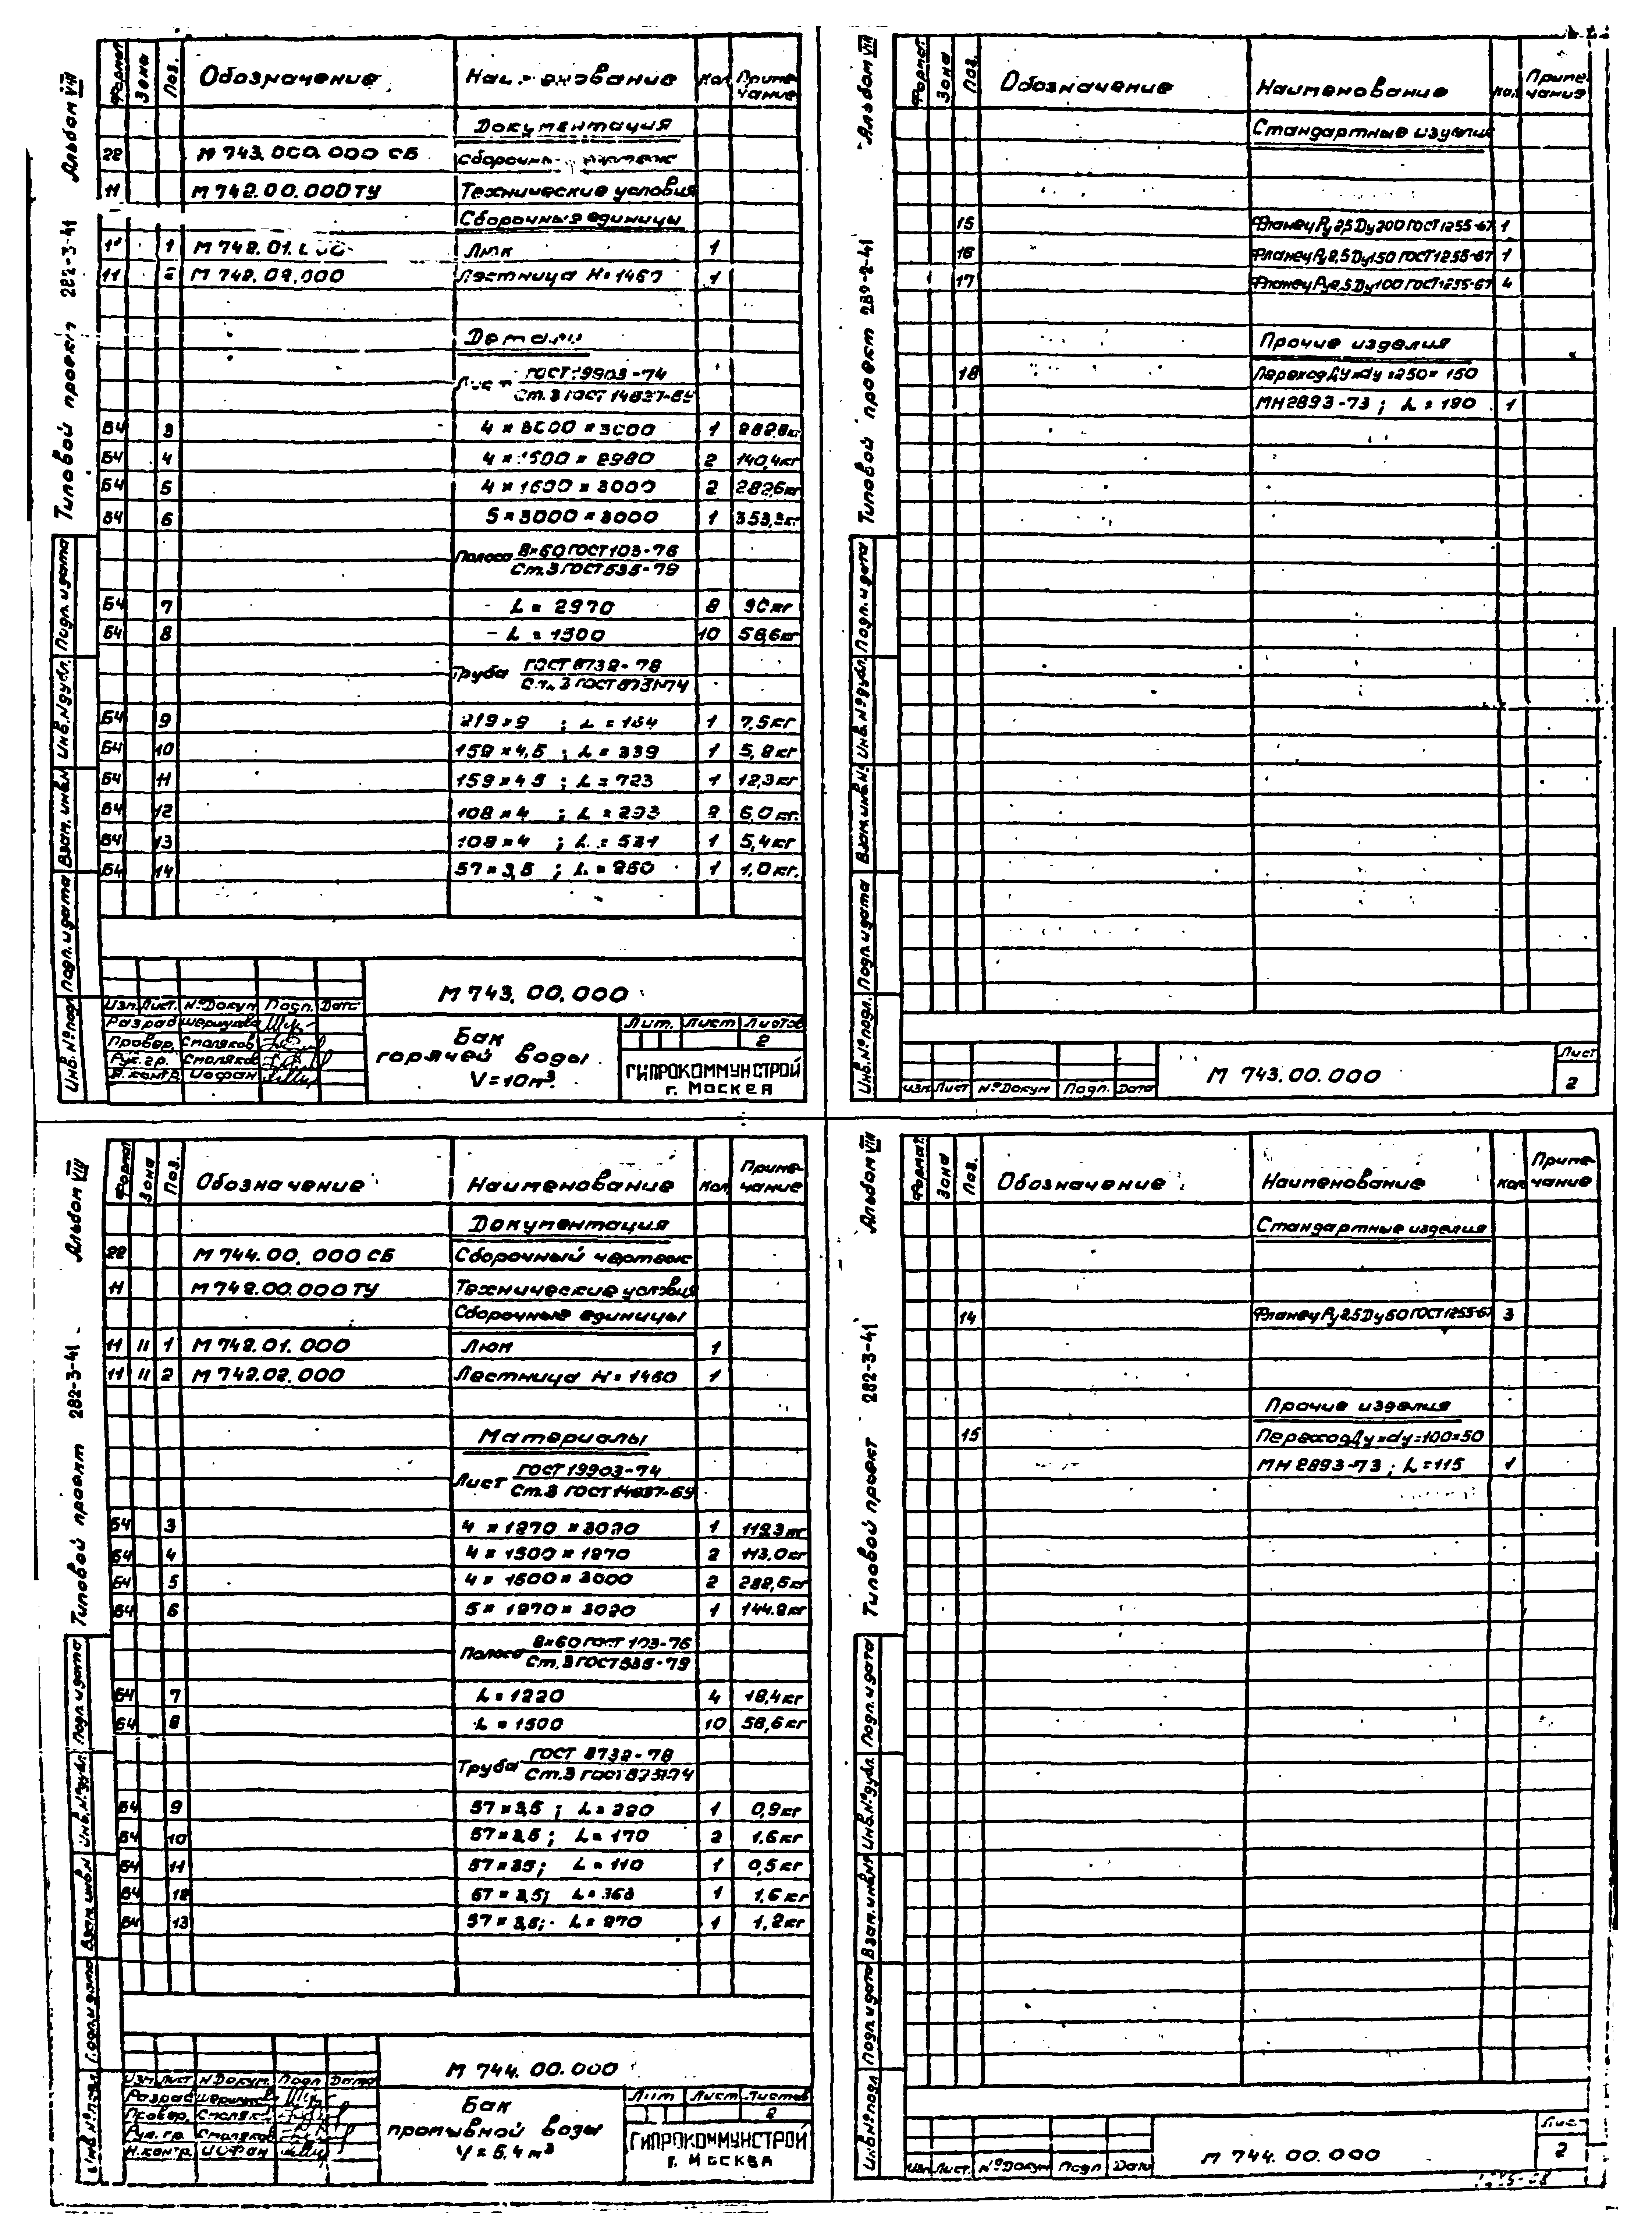 Альбом VIII
Типовой проект 282-3-41
Формат Зона Поз. Обозначение Кол. Приме-чание
Документация
22 М 743.000.000 СБ
11 М 742.00.000 ТУ Технические условия
Сборочные единицы
1 Люк 1
11 2 М 742.02.000 Лестница Н=1460 1
Детали
Лист ГОСТ 19903-74
Ст.3 ГОСТ 14637-69
Б4 3 4×3000×3000 1 282,6кг
Б4 4 4×1500×2980 2 140,4кг
Б4 5 4×1600×3000 2 282,6кг
Б4 6 5×3000×3000 1 353,3кг
Полоса 8×60 ГОСТ 103-76
Ст.3 ГОСТ 535-79
Б4 7 - L=2970 8 90кг
Б4 8 - L=1500 10 56,6кг
Труба ГОСТ 8732-78
Ст.3 ГОСТ 8731-74
Б4 9 219×9 ; L=164 1 7,5кг
Б4 10 159×4,5 ; L=339 1 5,8кг
Б4 11 159×4,5 ; L=723 1 12,3кг
Б4 12 108×4 ; L=293 2 6,0кг.
Б4 13 108×4 ; L=531 1 5,4кг
Б4 14 57×3,5 ; L=260 1 1,0кг.
Подп. и дата
Инв.№дубл.
Взам.инв.№
Подп. и дата
Инв.№подл.
М 743.00.000
Изм. Лист. №Докум Подп. Дата
Разраб
Провер. Смоляков
Рук. гр. Смоляков
Н.контр. Иофан
Бак
горячей воды
V=10м³
Лит. Лист Листов
2
ГИПРОКОММУНСТРОЙ
г. Москва
Альбом VIII
Типовой проект
Формат Зона Поз. Обозначение Наименование Кол Приме-чание
Стандартные изделия
15 Фланец Ру2,5 Dу200 ГОСТ 1255-67 1
16 Фланец Ру2,5 Dу150 ГОСТ 1255-67 1
17 Фланец Ру2,5 Dу100 ГОСТ 1255-67 4
Прочие изделия
18 Переход Ду×dу=250×150
МН2893-73 ; L=180 1
Подп. и дата
Инв.№дубл.
Взам.инв.№
Подп. и дата
Инв.№подл.
Изм Лист №Докум Подп. Дата
М 743.00.000
Лист
2
Альбом VIII
Типовой проект 282-3-41
Формат Зона Поз. Обозначение Наименование Кол. Приме-чание
Документация
22 М 744.00.000 СБ Сборочный чертеж
11 М 742.00.000 ТУ Технические условия
Сборочные единицы
11 11 1 М 742.01.000 Люк 1
11 11 2 М 742.02.000 Лестница Н=1460 1
Материалы
Лист ГОСТ 19903-74
Ст.3 ГОСТ 14637-69
Б4 3 4×1270×3020 1 119,3кг
Б4 4 4×1500×1270 2 113,0кг
Б4 5 4×1600×3000 2 282,6кг
Б4 6 5×1270×3020 1 144,8кг
Полоса 8×60 ГОСТ 103-76
Ст.3 ГОСТ 535-79
Б4 7 L=1220 4 18,4кг
Б4 8 L=1500 10 56,6кг
Труба ГОСТ 8732-78
Ст.3 ГОСТ 8731-74
Б4 9 57×3,5 ; L=220 1 0,9кг
Б4 10 57×3,5 ; L=170 2 1,6кг
Б4 11 57×3,5; L=110 1 0,5кг
Б4 12 57×3,5; L=363 1 1,6кг
Б4 13 57×3,5; L=270 1 1,2кг
Подп. и дата
Инв.№дубл.
Взам.инв.№
Подп. и дата
Инв.№подл
М 744.00.000
Изм Лист №Докум. Подп Дата
Разраб
Провер.
Рук. гр. Смоляков
Н.контр. Иофан
Бак
промывной воды
V=5,4м³
Лит Лист Листов
2
ГИПРОКОММУНСТРОЙ
г. Москва
Альбом VIII
Типовой проект 282-3-41
Формат. Зона Поз. Обозначение Наименование Кол Приме-чание
Стандартные изделия
14 Фланец Ру2,5 Dу50 ГОСТ 1255-67 3
Прочие изделия
15 Переход Ду×dу=100×50
МН 2893-73 ; L=115 1
Подп. и дата
Инв.№дубл.
Взам.инв.№
Подп. и дата
Инв.№подл
Изм Лист. №Докум Подп Дата
М 744.00.000
Лист
2